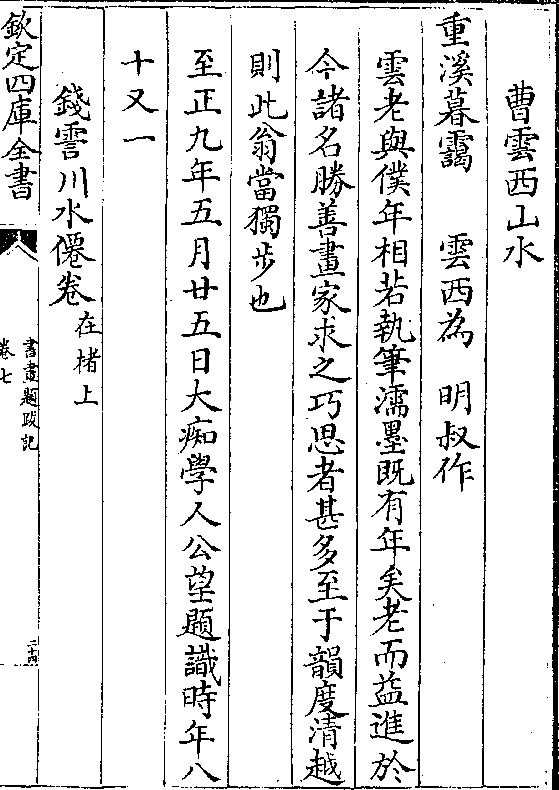 曹雲西山水
重溪暮靄　雲西為　明叔作
雲老與僕年相若執筆濡墨既有年矣老而益進於
今諸名勝善畫家求之巧思者甚多至于韻度清越
則此翁當獨步也
至正九年五月廿五日大痴學人公望題識時年八
十又一
錢霅川水僊卷在楮上
欽定四庫全書
書畫題跋記
卷七
二十四